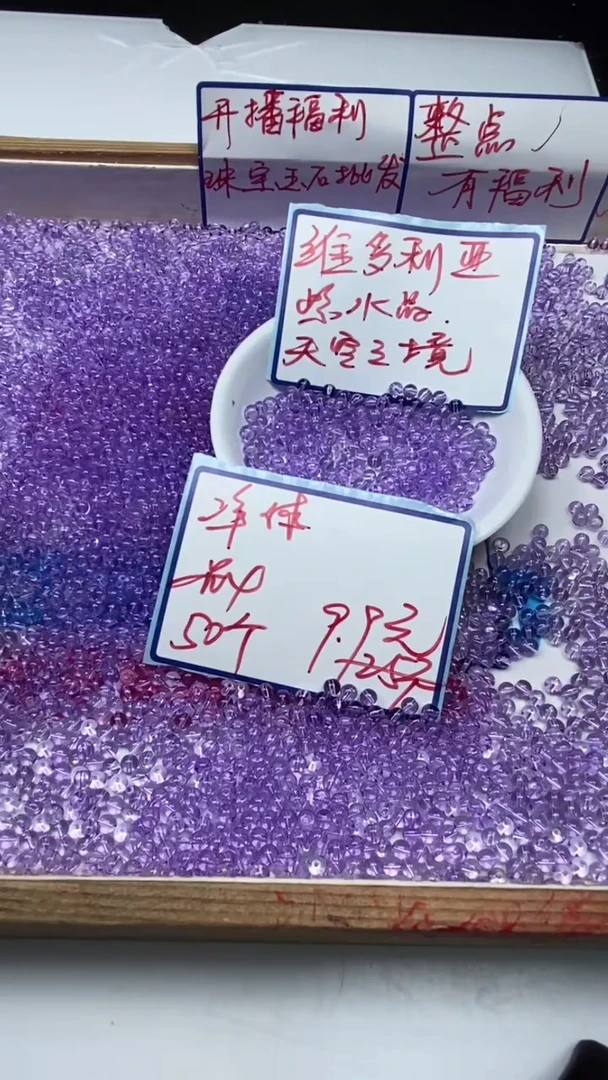 开播福利
珠宝玉石批发
整点
有福利
维多利亚
紫水晶.
天空之境
净体
50个
9.9元
+25元